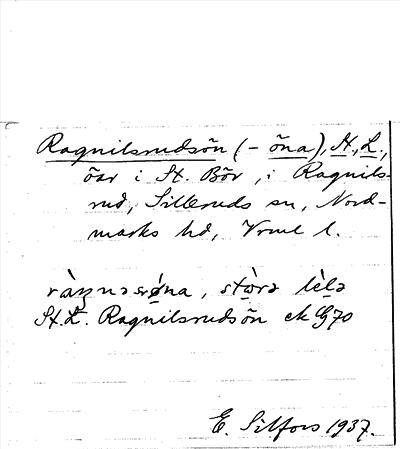 Ragnilsrudsön (- öna), St., L.,
öar i St. Bör, i Ragnils-
rud, Silleruds sn, Nord-
marks hd, Vrml l.
stòrə lèlə
St. L. Ragnilsrudsön ek G70
E. Silfors 1937.